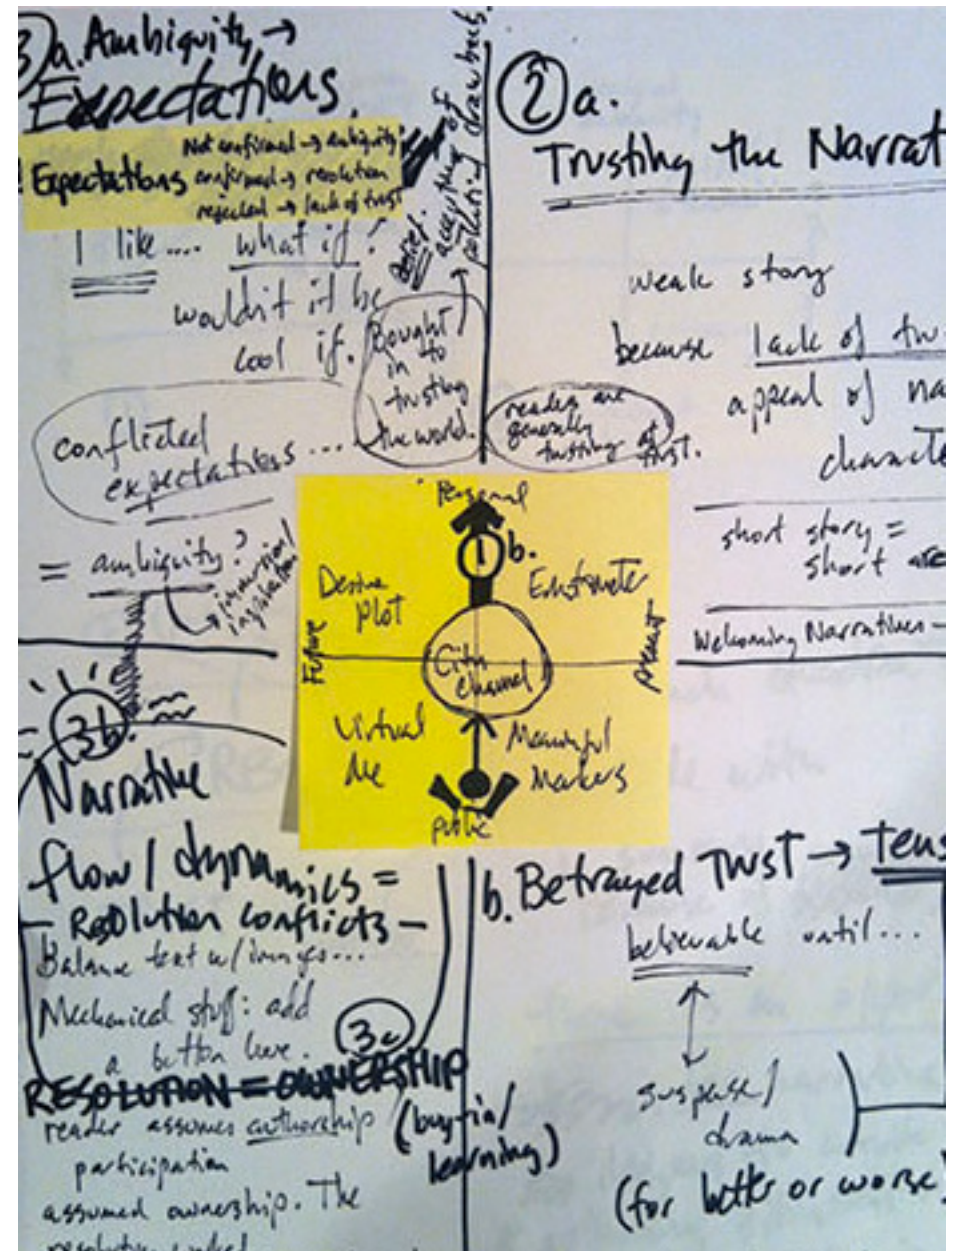 3) a. Ambiguity →
Expectations.
Expectations
Not confirmed → ambiguity
confirmed → resolution
rejected → lack of trust
I like.... what if?
wouldn't it be
cool if.
Bought
in to
trusting
the world.
belief.
acceptance of
drawbacks.
conflicted
expectations ...
= ambiguity?
immersion/
2 a.
Trusting the Narrat
weak story
because lack of tru
appeal of na
characte
readers are
generally
trusting at
first.
short story =
short
Welcoming Narratives -
Personal
1 b.
Desire
plot
Emotometer
Future
Present
City
channel
Virtual
Me
Meaningful
Markers
public
3b.
Narrative
flow / dynamics =
- Resolution conflicts -
Balance text w/ images...
Mechanical stuff: add
a button here.
3c
RESOLUTION = OWNERSHIP
reader assumes authorship
participation
assumed ownership. The
(buy-in/
learning)
b. Betrayed Trust → Tens
believable until...
suspense/
drama
(for better or worse)